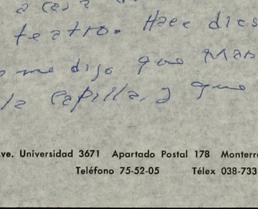 a casa
teatro. Hace dies
me dijo que Man
la capilla, y que
ve. Universidad 3671 Apartado Postal 178 Monterr
Teléfono 75-52-05 Télex 038-733